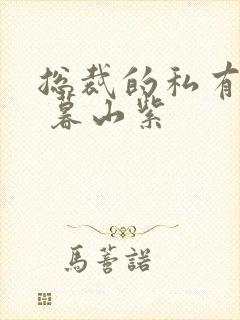 总裁的私有
暮山紫
馬薈諾